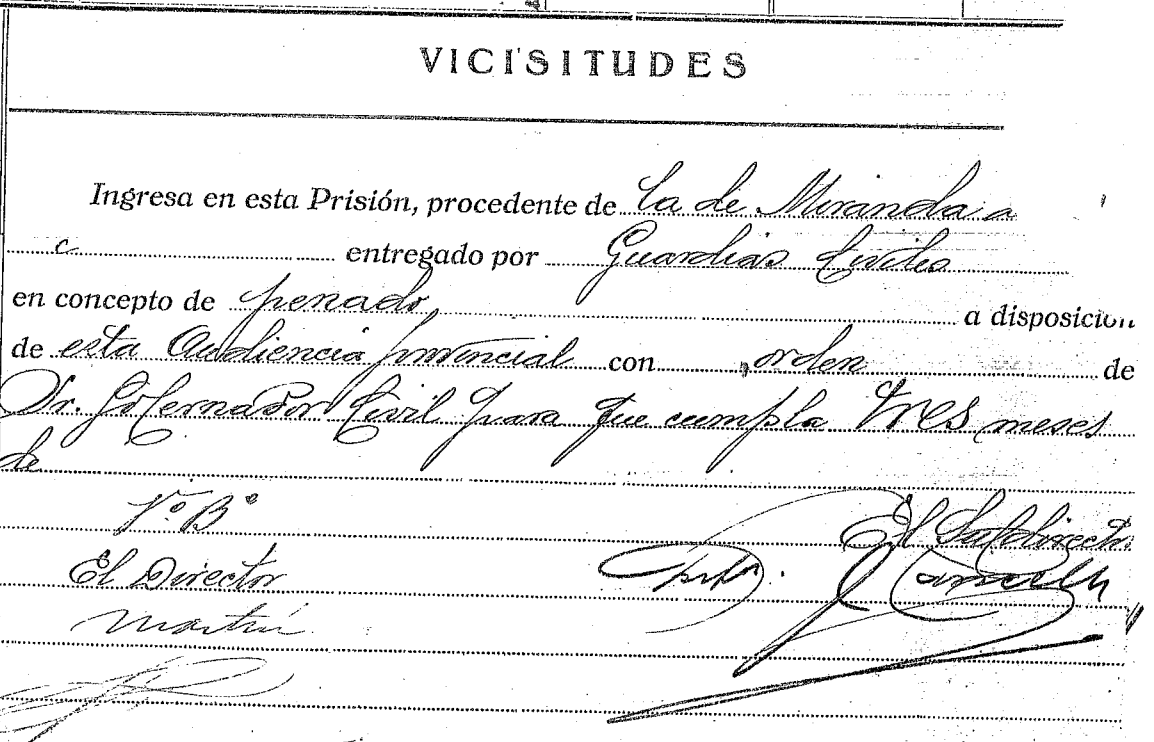 VICISITUDES
Ingresa en esta Prisión, procedente de la de Miranda a
c entregado por Guardias Civiles
en concepto de penado a disposición
de esta Audiencia provincial con orden de
Sr. Gobernador Civil para que cumpla tres meses
de
Vº Bº El Subdirector
El Director
Martín